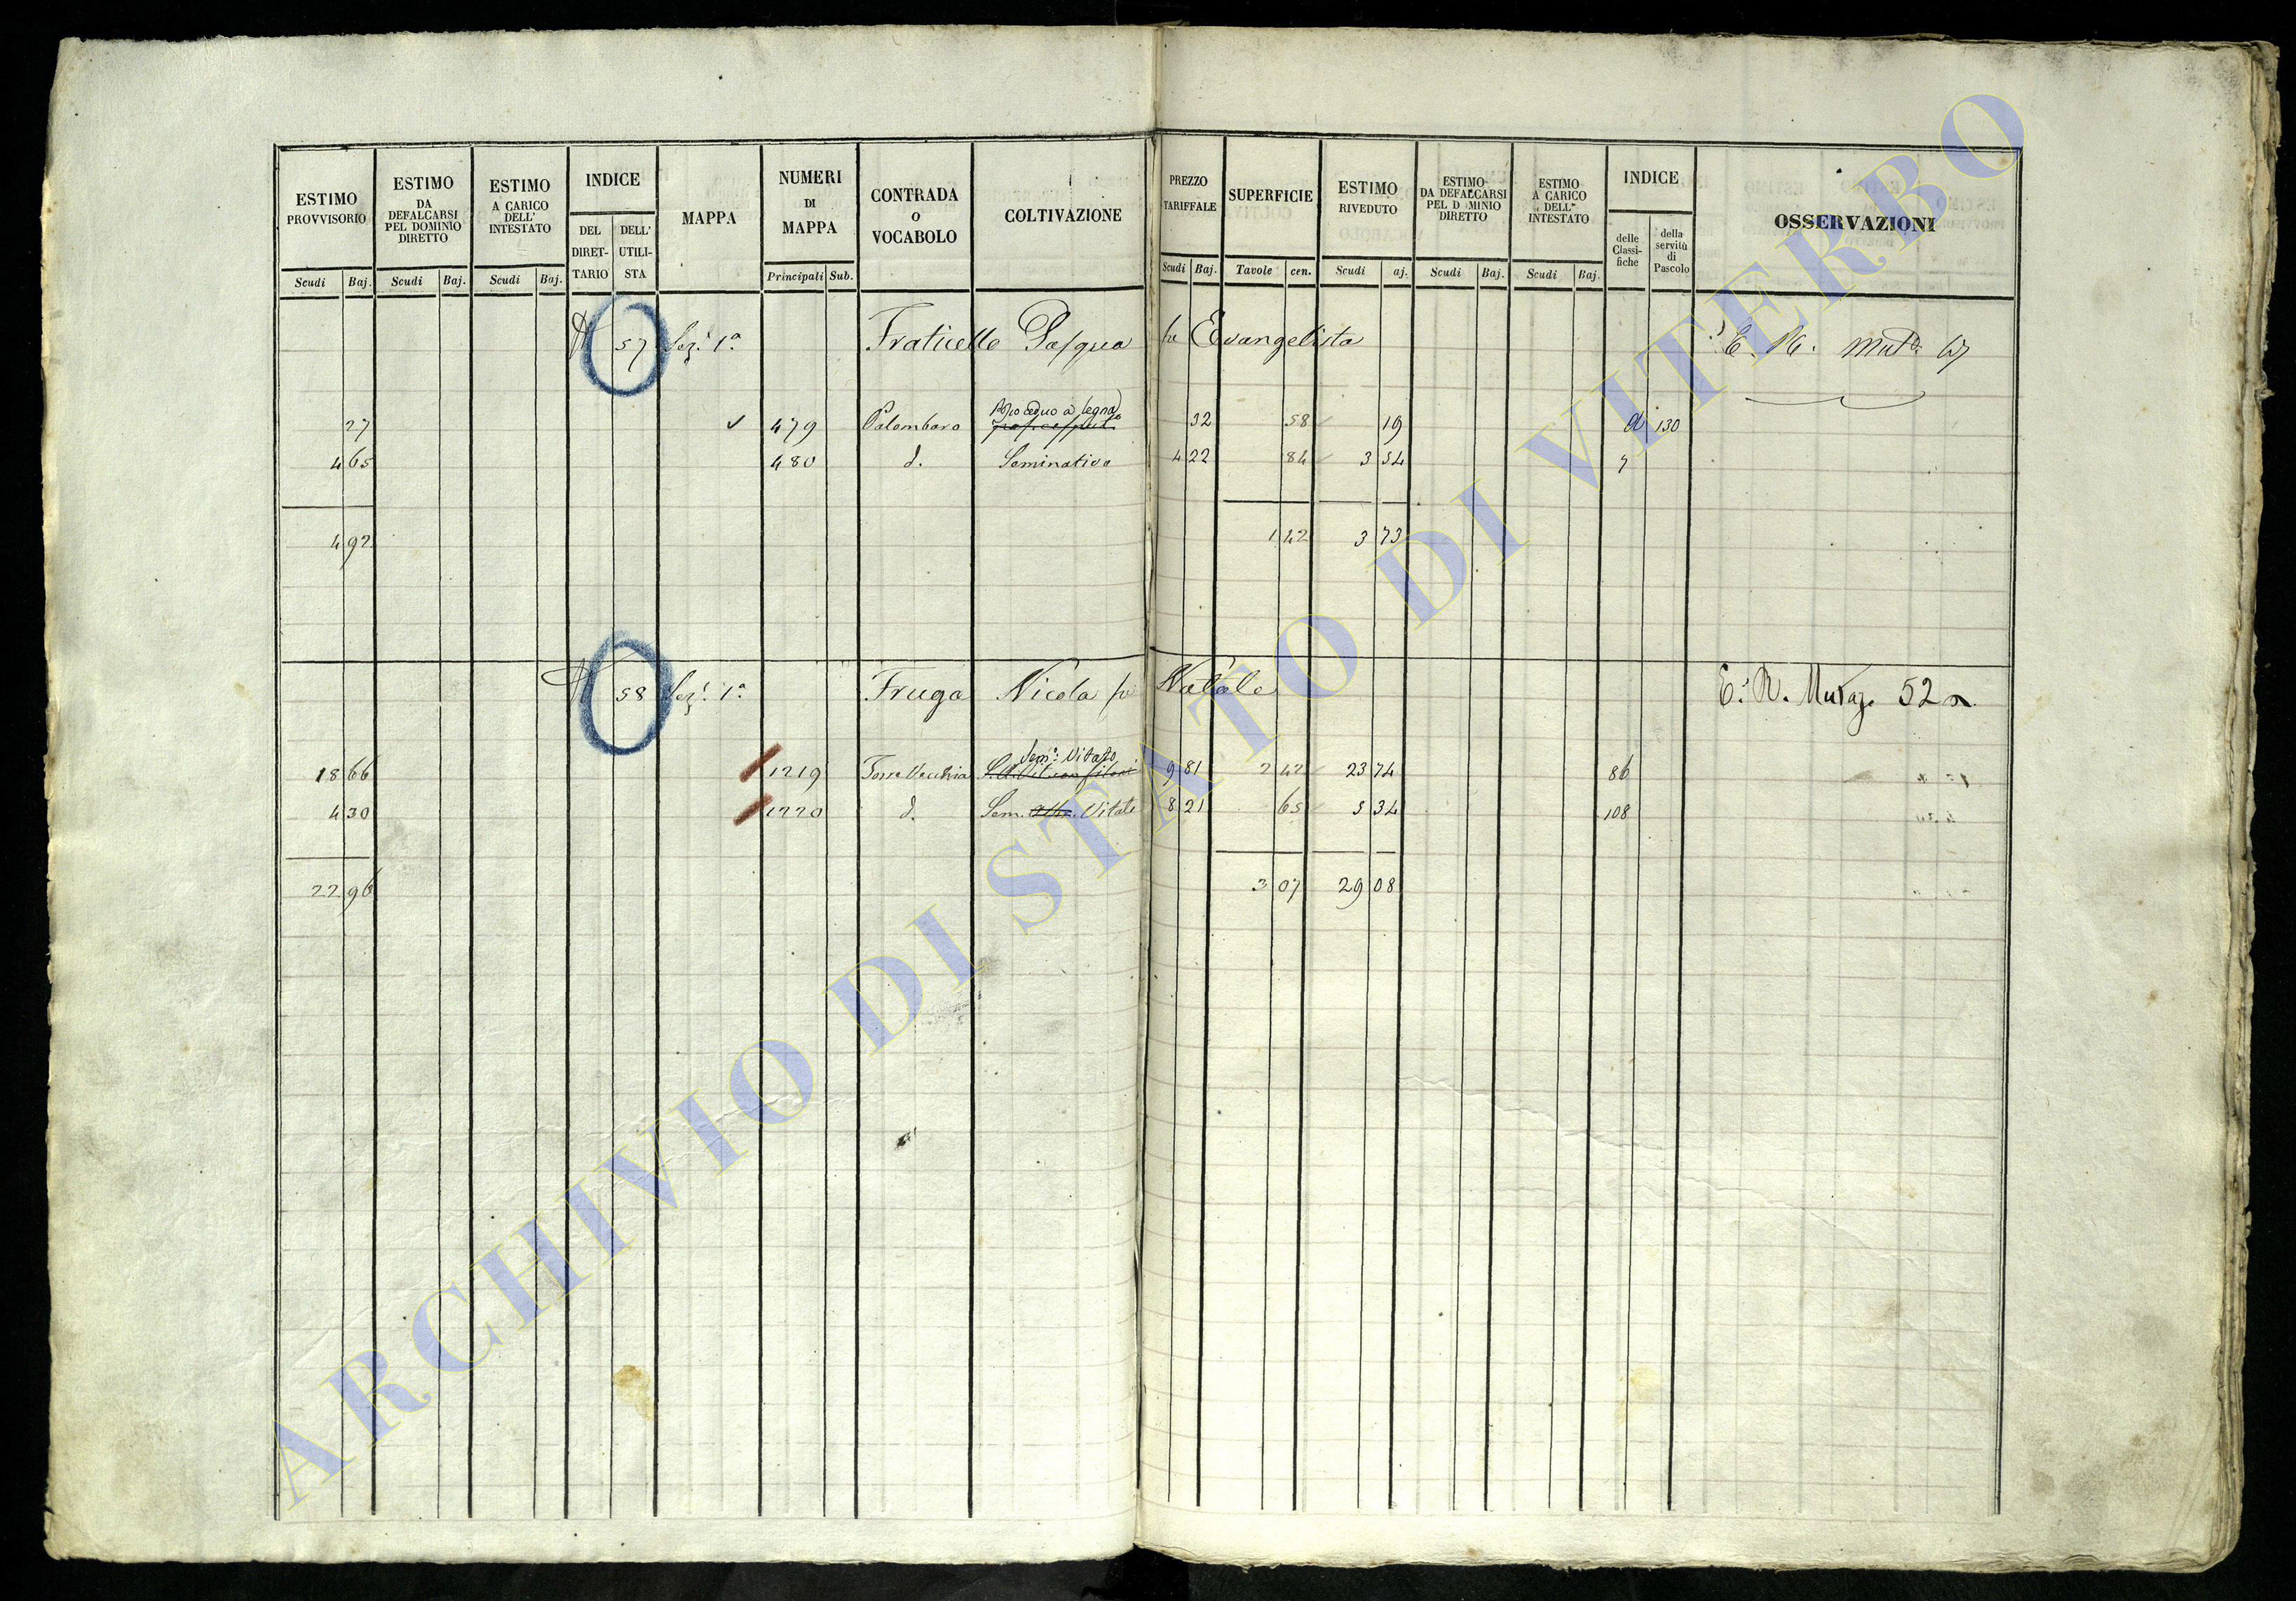 ESTIMO PROVVISORIO
Scudi Baj.
ESTIMO DA DEFALCARSI PEL DOMINIO DIRETTO
Scudi Baj.
ESTIMO A CARICO DELL' INTESTATO
Scudi Baj.
INDICE
DEL DIRET-TARIO
DELL' UTILI-STA
MAPPA
NUMERI DI MAPPA
Principali Sub.
CONTRADA O VOCABOLO
COLTIVAZIONE
PREZZO TARIFFALE
Scudi Baj.
SUPERFICIE
Tavole cen.
ESTIMO RIVEDUTO
Scudi aj.
ESTIMO DA DEFALCARSI PEL D MINIO DIRETTO
Scudi Baj.
ESTIMO A CARICO DELL' INTESTATO
Scudi Baj.
INDICE
delle Classi-fiche
della servitù di Pascolo
OSSERVAZIONI
57 Sez. 1a Fraticello Pasqua fu Evangelista
27 479 Palombaro 32 58 19 a 130
4 65 480 d. Seminativo 4 22 84 3 54 7
4 92 1 42 3 73
58 Sez. 1a Fruga Nicola fu Natale E. R. Mutaz. 52
Sem. Vitato
18 66 1219 Torre Vecchia 9 81 2 42 23 74 86
4 30 1220 d. Sem. Vitato 8 21 65 5 34 108
22 96 3 07 29 08
ARCHIVIO DI STATO DI VITERBO